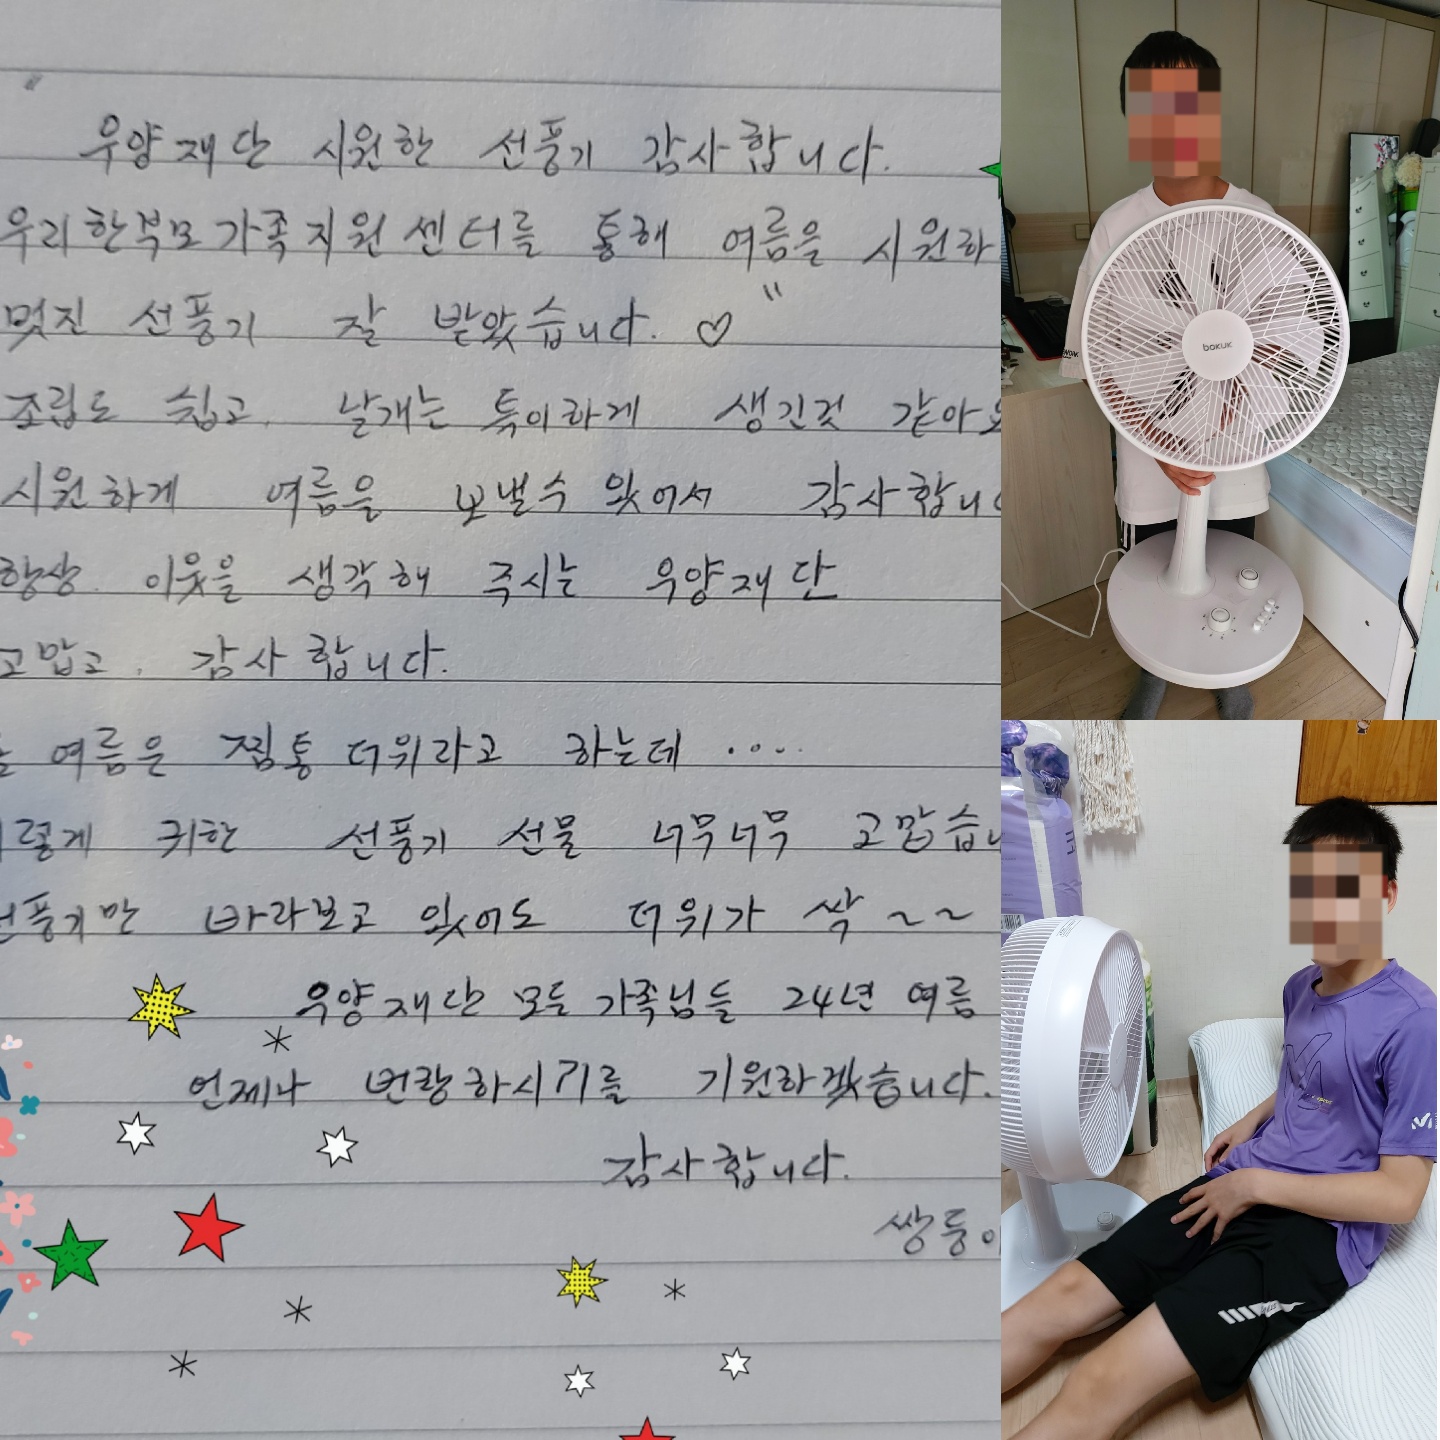 우양재단 시원한 선풍기 감사합니다.
우리한부모가족지원센터를 통해 여름을 시원하
멋진 선풍기 잘 받았습니다. ♡"
조립도 쉽고, 날개는 특이하게 생긴것 같아요
시원하게 여름을 보낼수 있어서 감사합니다
항상 이웃을 생각해 주시는 우양재단
고맙고, 감사합니다.
여름은 찜통 더위라고 하는데 ....
이렇게 귀한 선풍기 선물 너무너무 고맙습니
선풍기만 바라보고 있어도 더위가 싹 ~~
우양재단 모든 가족님들 24년 여름
언제나 하시기를 기원하겠습니다.
감사합니다.
쌍둥이
bokuk